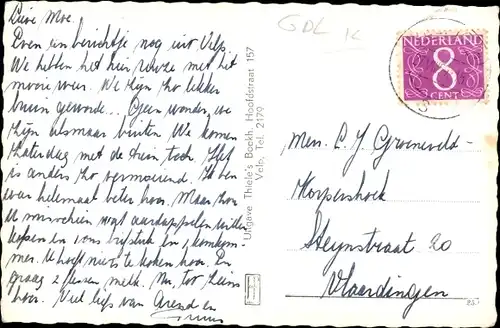 GDL K
Lieve Moe.
Even een berichtje nog uit Velp.
We hebben het hier reuze met het
mooie weer. We zijn zo lekker
bruin geworden... Geen wonder, we
zijn alsmaar buiten. We komen
Zaterdag met de trein toch. Het
is anders zo vermoeiend. Ik ben
weer helemaal beter hoor. Maar zou
U misschien wat aardappelen willen
kopen en ons biefstuk en 1 komkom-
mer. U hoeft niets te koken hoor. En
graag 2 flessen melk. Nu, tot ziens
hoor. Veel liefs van Arend en
Uitgave Thiele's Boekh. Hoofdstraat 157
Velp, Tel. 2179
NEDERLAND
8
CENT
Mevr. L J Groeneveld-
Korpershoek
Steynstraat 20
Vlaardingen